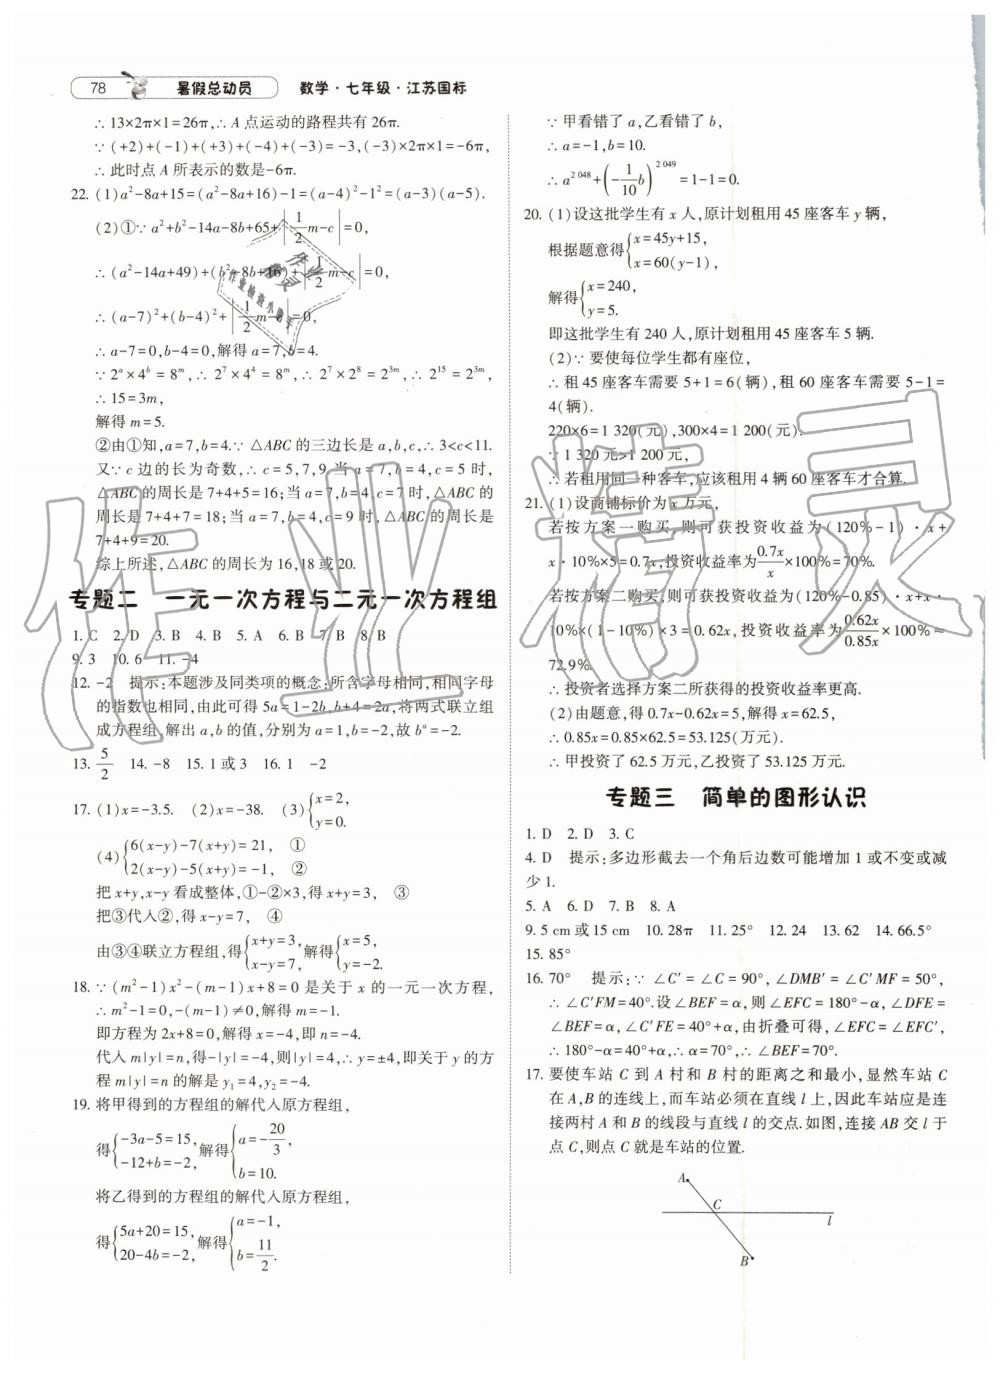 78 暑假总动员 数学·七年级·江苏国标
∴ 13×2π×1=26π,∴ A 点运动的路程共有 26π.
∵ (+2)+(-1)+(+3)+(-4)+(-3)=-3,(-3)×2π×1=-6π,
∴ 此时点 A 所表示的数是-6π.
22. (1)a²-8a+15=(a²-8a+16)-1=(a-4)²-1²=(a-3)(a-5).
(2)①∵ a²+b²-14a-8b+65+|1/2m-c|=0,
∴ (a²-14a+49)+(b²-8b+16)+|1/2m-c|=0,
∴ (a-7)²+(b-4)²+|1/2m-c|=0,
∴ a-7=0,b-4=0,解得 a=7,b=4.
∵ 2ᵃ×4ᵇ=8ᵐ,∴ 2⁷×4⁴=8ᵐ,∴ 2⁷×2⁸=2³ᵐ,∴ 2¹⁵=2³ᵐ,
∴ 15=3m,
解得 m=5.
②由①知,a=7,b=4.∵ △ABC 的三边长是 a,b,c,∴ 3<c<11.
又∵ c 边的长为奇数,∴ c=5,7,9,当 a=7,b=4,c=5 时,
△ABC 的周长是 7+4+5=16;当 a=7,b=4,c=7 时,△ABC
的周长是 7+4+7=18;当 a=7,b=4,c=9 时,△ABC 的周长是
7+4+9=20.
综上所述,△ABC 的周长为 16,18 或 20.
专题二 一元一次方程与二元一次方程组
1. C 2. D 3. B 4. B 5. A 6. B 7. B 8. B
9. 3 10. 6 11. -4
12. -2 提示:本题涉及同类项的概念:所含字母相同,相同字母
的指数也相同,由此可得 5a=1-2b,b+4=2a,将两式联立组
成方程组,解出 a,b 的值,分别为 a=1,b=-2,故 bᵃ=-2.
13. 5/2 14. -8 15. 1 或 3 16. 1 -2
17. (1)x=-3.5. (2)x=-38. (3){x=2,
y=0.
(4){6(x-y)-7(x+y)=21, ①
2(x-y)-5(x+y)=-1, ②
把 x+y,x-y 看成整体,①-②×3,得 x+y=3, ③
把③代入②,得 x-y=7, ④
由③④联立方程组,得{x+y=3, x-y=7, 解得{x=5, y=-2.
18. ∵ (m²-1)x²-(m-1)x+8=0 是关于 x 的一元一次方程,
∴ m²-1=0,-(m-1)≠0,解得 m=-1.
即方程为 2x+8=0,解得 x=-4,即 n=-4.
代入 m|y|=n,得-|y|=-4,则|y|=4,∴ y=±4,即关于 y 的方
程 m|y|=n 的解是 y₁=4,y₂=-4.
19. 将甲得到的方程组的解代入原方程组,
得{-3a-5=15, -12+b=-2, 解得{a=-20/3, b=10.
将乙得到的方程组的解代入原方程组,
得{5a+20=15, 20-4b=-2, 解得{a=-1, b=11/2.
∵ 甲看错了 a,乙看错了 b,
∴ a=-1,b=10.
∴ a²⁰⁴⁸+(-1/10b)²⁰⁴⁹=1-1=0.
20. (1)设这批学生有 x 人,原计划租用 45 座客车 y 辆,
根据题意得{x=45y+15, x=60(y-1),
解得{x=240, y=5.
即这批学生有 240 人,原计划租用 45 座客车 5 辆.
(2)∵ 要使每位学生都有座位,
∴ 租 45 座客车需要 5+1=6(辆),租 60 座客车需要 5-1=
4(辆).
220×6=1 320(元),300×4=1 200(元).
∵ 1 320 元>1 200 元,
∴ 若租用同一种客车,应该租用 4 辆 60 座客车才合算.
21. (1)设商铺标价为 x 万元,
若按方案一购买,则可获投资收益为(120%-1)·x+
x·10%×5=0.7x,投资收益率为0.7x/x×100%=70%.
若按方案二购买,则可获投资收益为(120%-0.85)·x+x·
10%×(1-10%)×3=0.62x,投资收益率为0.62x/0.85x×100%≈
72.9%.
∴ 投资者选择方案二所获得的投资收益率更高.
(2)由题意,得 0.7x-0.62x=5,解得 x=62.5,
∴ 0.85x=0.85×62.5=53.125(万元).
∴ 甲投资了 62.5 万元,乙投资了 53.125 万元.
专题三 简单的图形认识
1. D 2. D 3. C
4. D 提示:多边形截去一个角后边数可能增加 1 或不变或减
少 1.
5. A 6. D 7. B 8. A
9. 5 cm 或 15 cm 10. 28π 11. 25° 12. 24 13. 62 14. 66.5°
15. 85°
16. 70° 提示:∵ ∠C′=∠C=90°,∠DMB′=∠C′MF=50°,
∴ ∠C′FM=40°.设∠BEF=α,则∠EFC=180°-α,∠DFE=
∠BEF=α,∠C′FE=40°+α,由折叠可得,∠EFC=∠EFC′,
∴ 180°-α=40°+α,∴ α=70°,∴ ∠BEF=70°.
17. 要使车站 C 到 A 村和 B 村的距离之和最小,显然车站 C
在 A,B 的连线上,而车站必须在直线 l 上,因此车站应是连
接两村 A 和 B 的线段与直线 l 的交点.如图,连接 AB 交 l 于
点 C,则点 C 就是车站的位置.
A
C
l
B
作业精灵
作业检查小助手